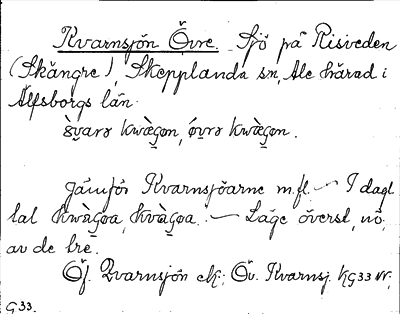 Kvarnsjön Övre. Sjö på Risveden
(Skängre), Skepplanda sn, Ale härad i
Älfsborgs län.
kwæ̀gon, kwæ̀gon.
Jämför Kvarnsjöarne m.fl. — I dagl
tal — Läge överst, nö,
av de tre.
Öf. Qvarnsjön eK; Öv. Kvarnsj. KG33 Nr,
G33.